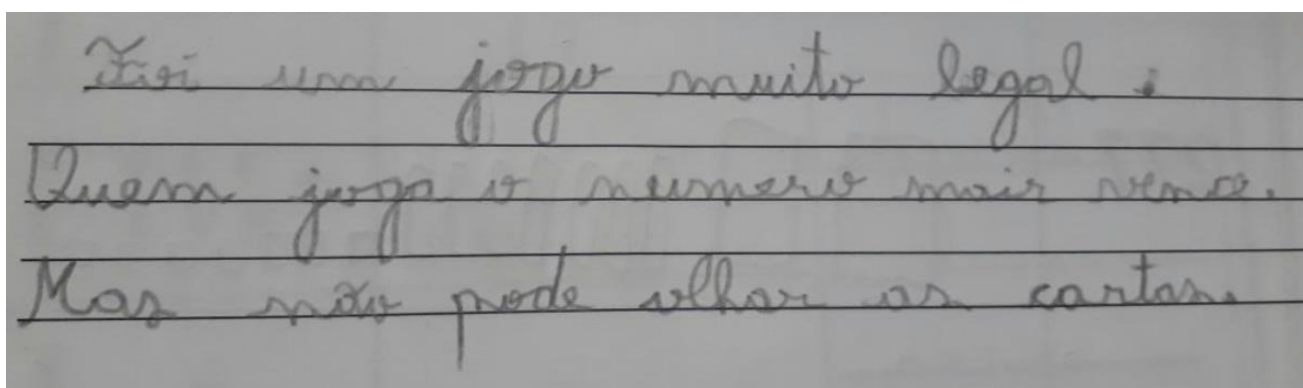 Foi um jogo muito legal.
Quem joga o numero mais vence.
Mas não pode olhar as cartas.